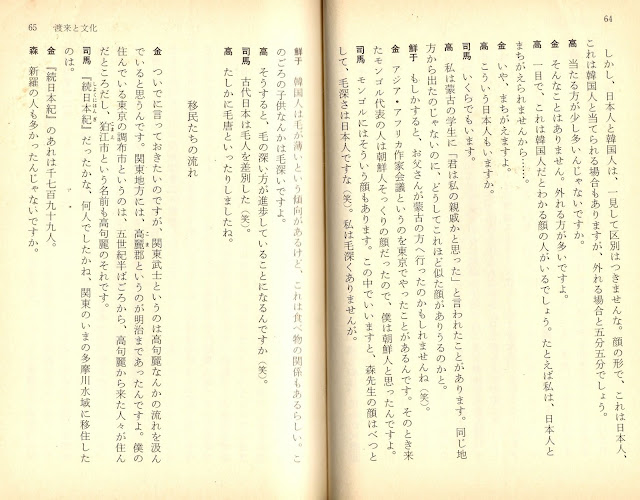 64
しかし、日本人と韓国人は、一見して区別はつきません。顔の形で、これは日本人、
これは韓国人と当てられる場合もありますが、外れる場合と五分五分でしょう。
高　当たる方が少し多いんじゃないですか。
金　そんなことはありません。外れる方が多いですよ。
高　一目で、これは韓国人だとわかる顔の人がいるでしょう。たとえば私は、日本人と
まちがえられませんから……。
金　いや、まちがえますよ。
高　こういう日本人もいますか。
司馬　いくらでもいます。
高　私は蒙古の学生に「君は私の親戚かと思った」と言われたことがあります。同じ地
方から出たのじゃないのに、どうしてこれほど似た顔がありうるのかと。
鮮于　もしかすると、お父さんが蒙古の方へ行ったのかもしれませんね（笑）。
金　アジア・アフリカ作家会議というのを東京でやったことがあるんです。そのとき来
たモンゴル代表の人は朝鮮人そっくりの顔だったので、僕は朝鮮人と思ったんですよ。
司馬　モンゴルにはそういう顔もあります。この中でいいますと、森先生の顔はべつと
して、毛深さは日本人ですな（笑）。私は毛深くありませんが。
65　渡来と文化
鮮于　韓国人は毛が薄いという傾向があるけど、これは食べ物の関係もあるらしい。こ
のごろの子供なんかは毛深いですよ。
高　そうすると、毛の深い方が進歩していることになるんですか（笑）。
司馬　古代日本は毛人を差別した（笑）。
高　たしかに毛唐といったりしましたね。
移民たちの流れ
金　ついでに言っておきたいのですが、関東武士というのは高句麗なんかの流れを汲ん
でいると思うんです。関東地方には、高麗郡というのが明治まであったんですよ。僕の
住んでいる東京の調布市というのは、五世紀半ばごろから、高句麗から来た人々が住ん
だところだし、狛江市という名前も高句麗のそれです。
司馬　『続日本紀』だったかな、何人でしたかね、関東のいまの多摩川水域に移住した
のは。
金　『続日本紀』のあれは千七百九十九人。
森　新羅の人も多かったんじゃないですか。